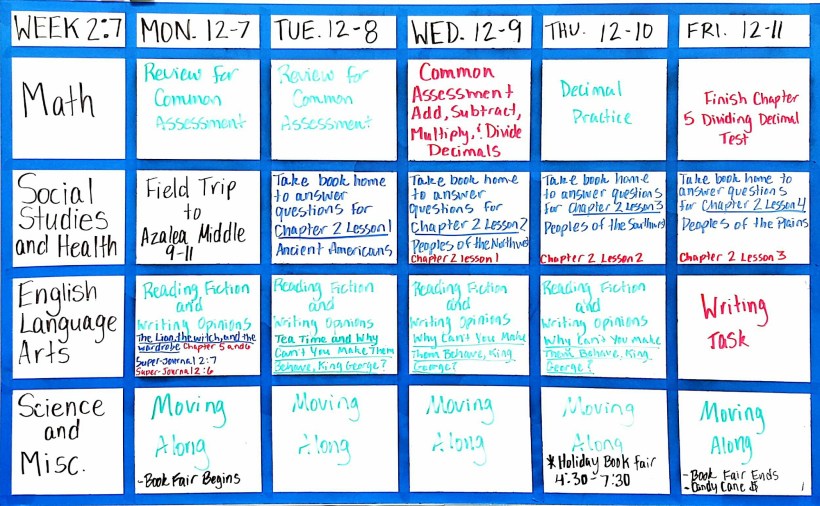 WEEK 2:7
MON. 12-7
TUE. 12-8
WED. 12-9
THU. 12-10
FRI. 12-11
Math
Review for
Common
Assessment
Review for
Common
Assessment
Common
Assessment
Add, Subtract,
Multiply, & Divide
Decimals
Decimal
Practice
Finish Chapter
5 Dividing Decimal
Test
Social
Studies
and Health
Field Trip
to
Azalea Middle
9-11
Take book home
to answer
questions for
Chapter 2 Lesson 1
Ancient Americans
Take book home
to answer
questions for
Chapter 2 Lesson 2
Peoples of the Northwest
Chapter 2 lesson 1
Take book home
to answer questions
for Chapter 2 Lesson 3
Peoples of the Southwest
Chapter 2 Lesson 2
Take book home to
answer questions
for Chapter 2 Lesson 4
Peoples of the Plains
Chapter 2 Lesson 3
English
Language
Arts
Reading Fiction
and
Writing Opinions
The Lion, the witch, and the
wardrobe Chapter 5 and 6
Super-Journal 2:7
Super-Journal 2:6
Reading Fiction
and
Writing Opinions
Tea Time and Why
Can't You Make Them
Behave, King George?
Reading Fiction
and
Writing Opinions
Why Can't You Make
Them Behave, King
George?
Reading Fiction
and
Writing Opinions
Why Can't You Make
Them Behave, King
George?
Writing
Task
Science
and
Misc.
Moving
Along
-Book Fair Begins
Moving
Along
Moving
Along
Moving
Along
*Holiday Book fair
4:30-7:30
Moving
Along
-Book Fair Ends
-Candy Cane $